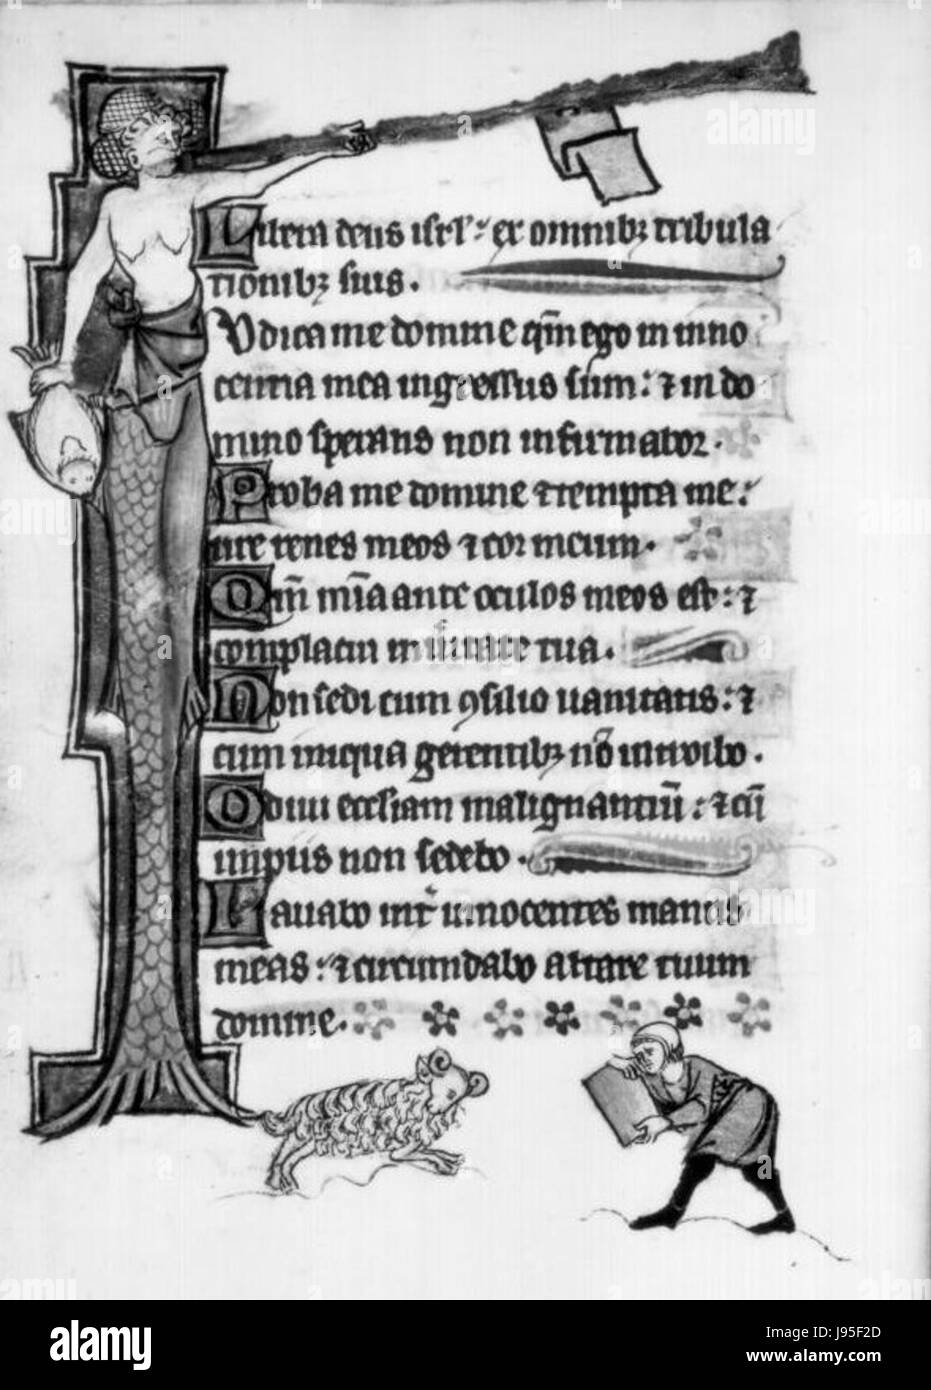 Libera deus isrl': ex omnibꝫ tribula
tionibꝫ suis.
Vdica me domine qm̄ ego in inno
centia mea ingressus sum: ⁊ in do
mino sperans non infirmabor.
Proba me domine ⁊ tempta me:
ure renes meos ⁊ cor meum.
Qm̄ mīa ante oculos meos est: ⁊
complacui in tua.
Non sedi cum ꝯsilio uanitatis: ⁊
cum iniqua gerentibꝫ nō introibo.
Odiui ecclesiam malignantiū: ⁊ cū
impiis non sedebo.
Lauabo int̉ innocentes manus
meas: ⁊ circumdabo altare tuum
domine.
alamy
Image ID: J95F2D
www.alamy.com